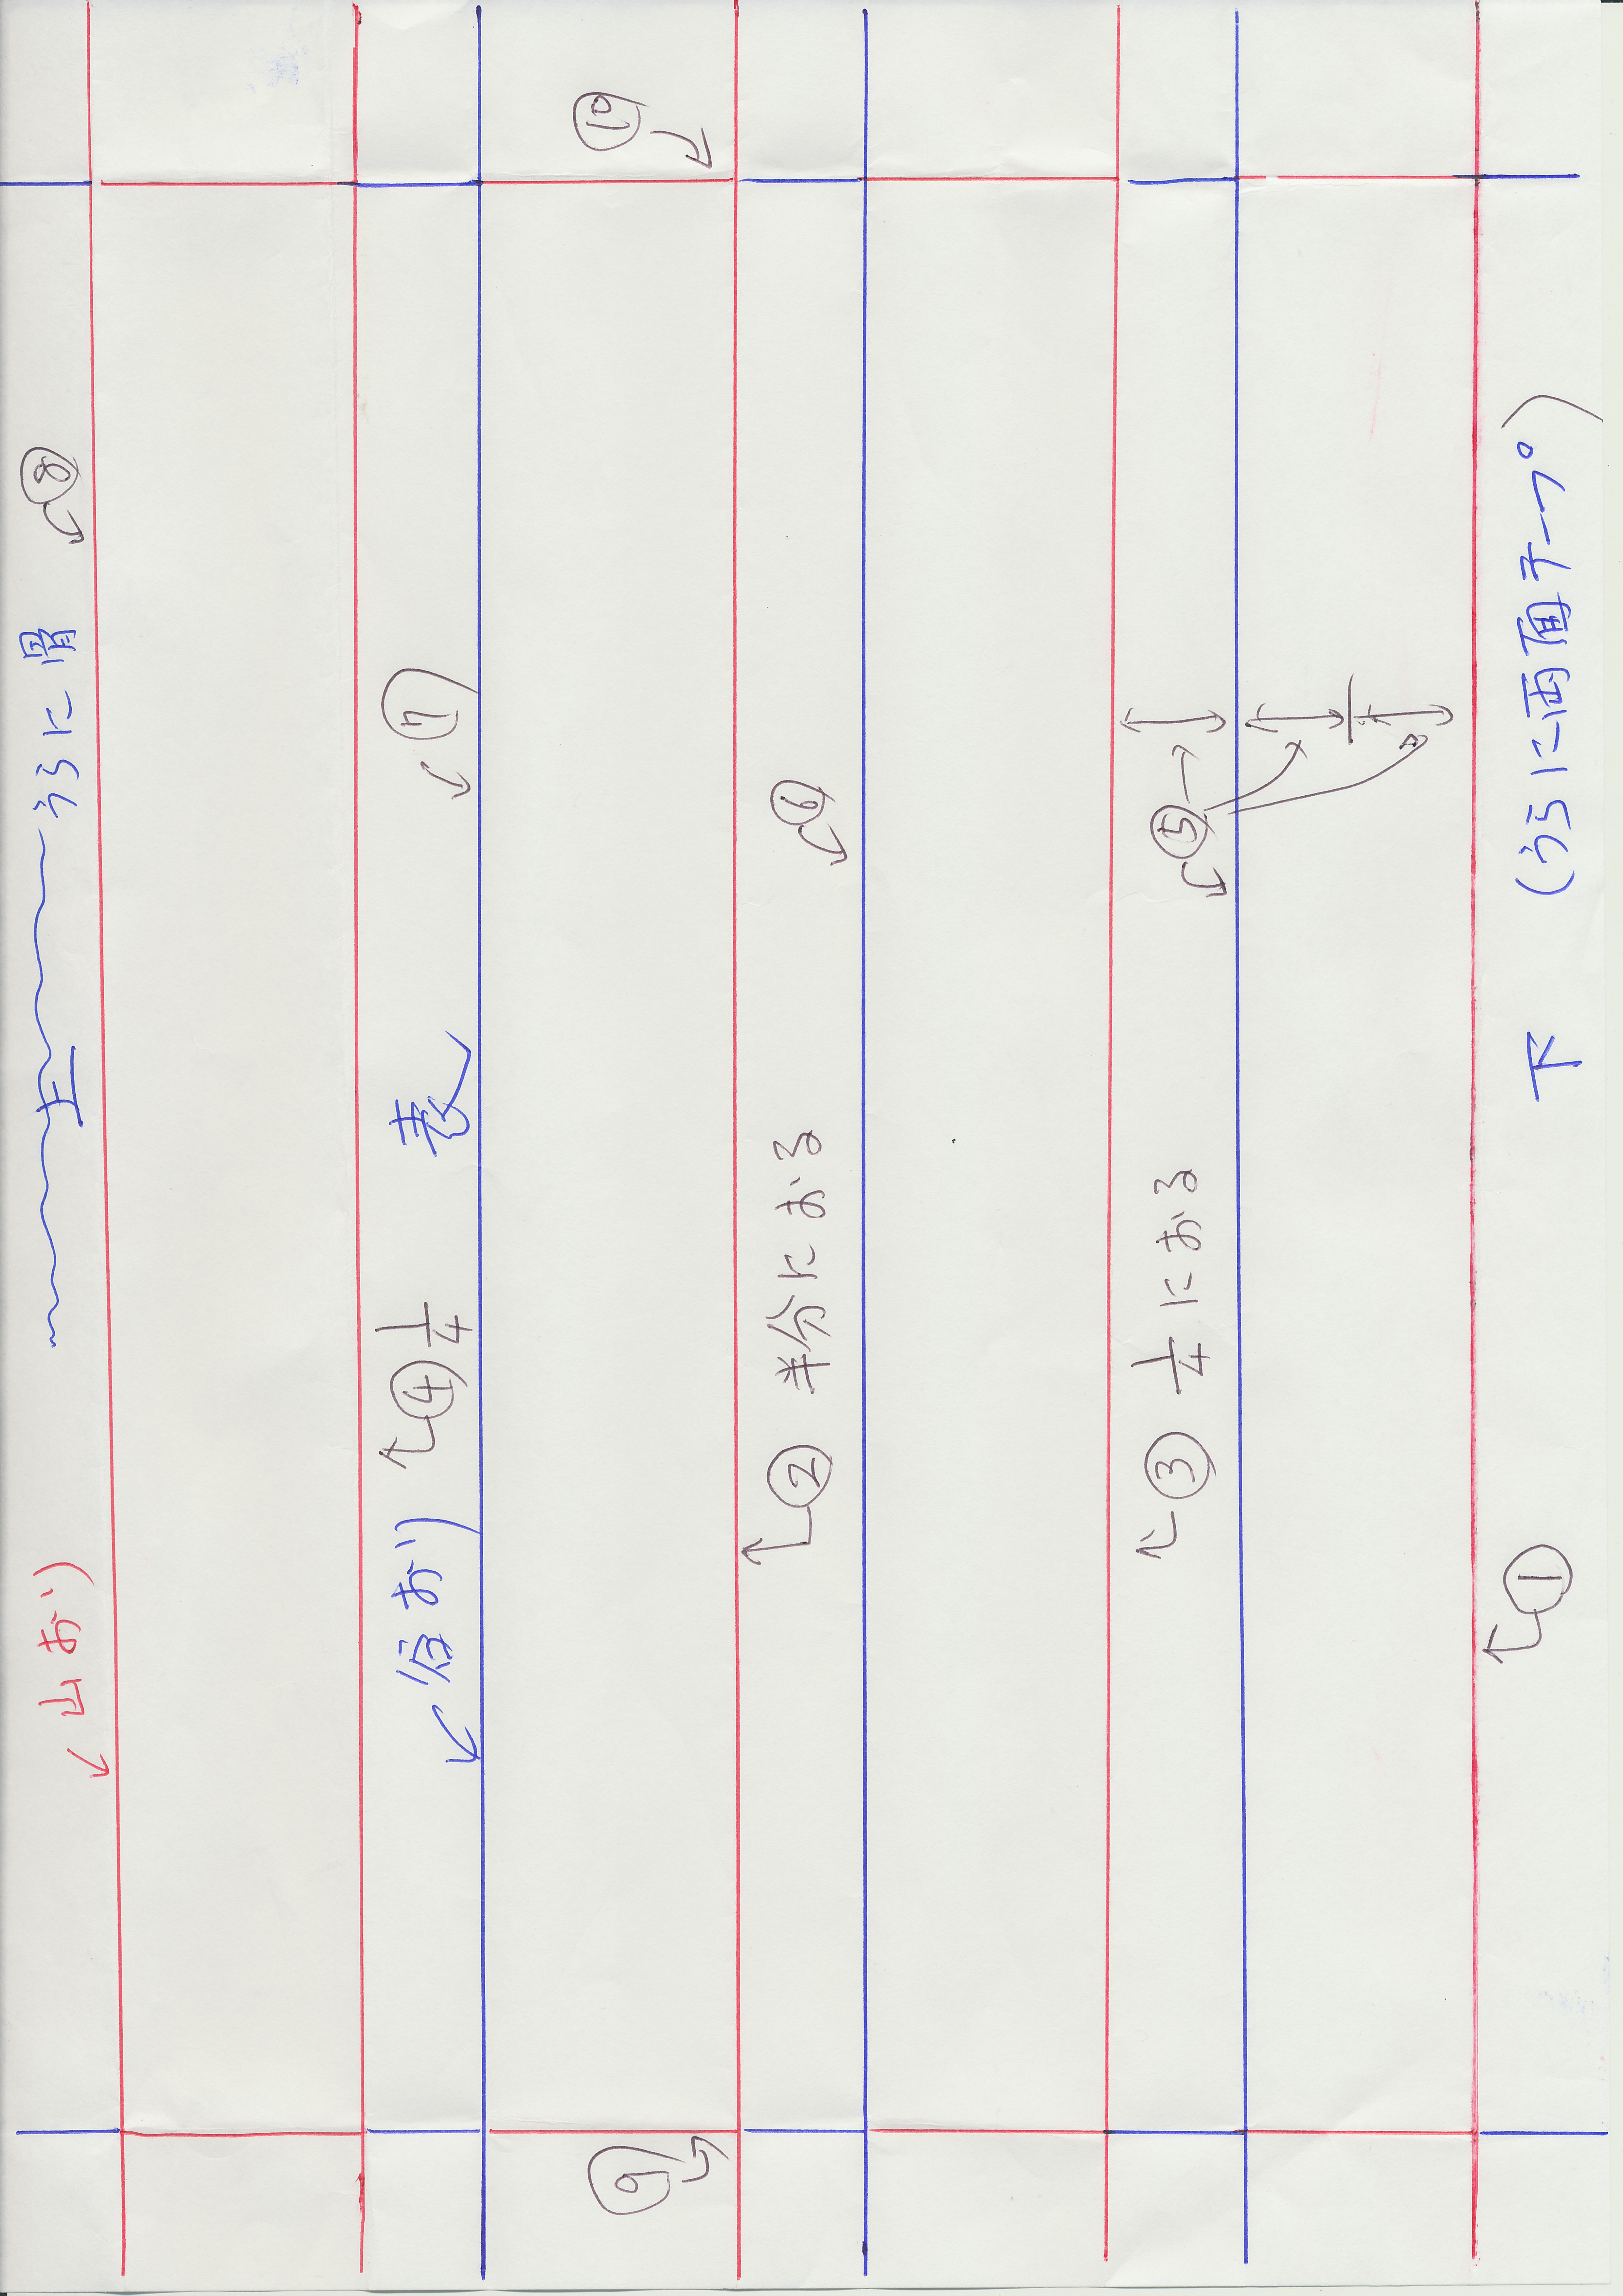 山おり
上
うらに骨
⑧
谷おり
④ 1/4
表
⑦
⑨
⑩
② 半分におる
⑥
③ 1/4におる
⑤
①
下 (うらに両面テープ)